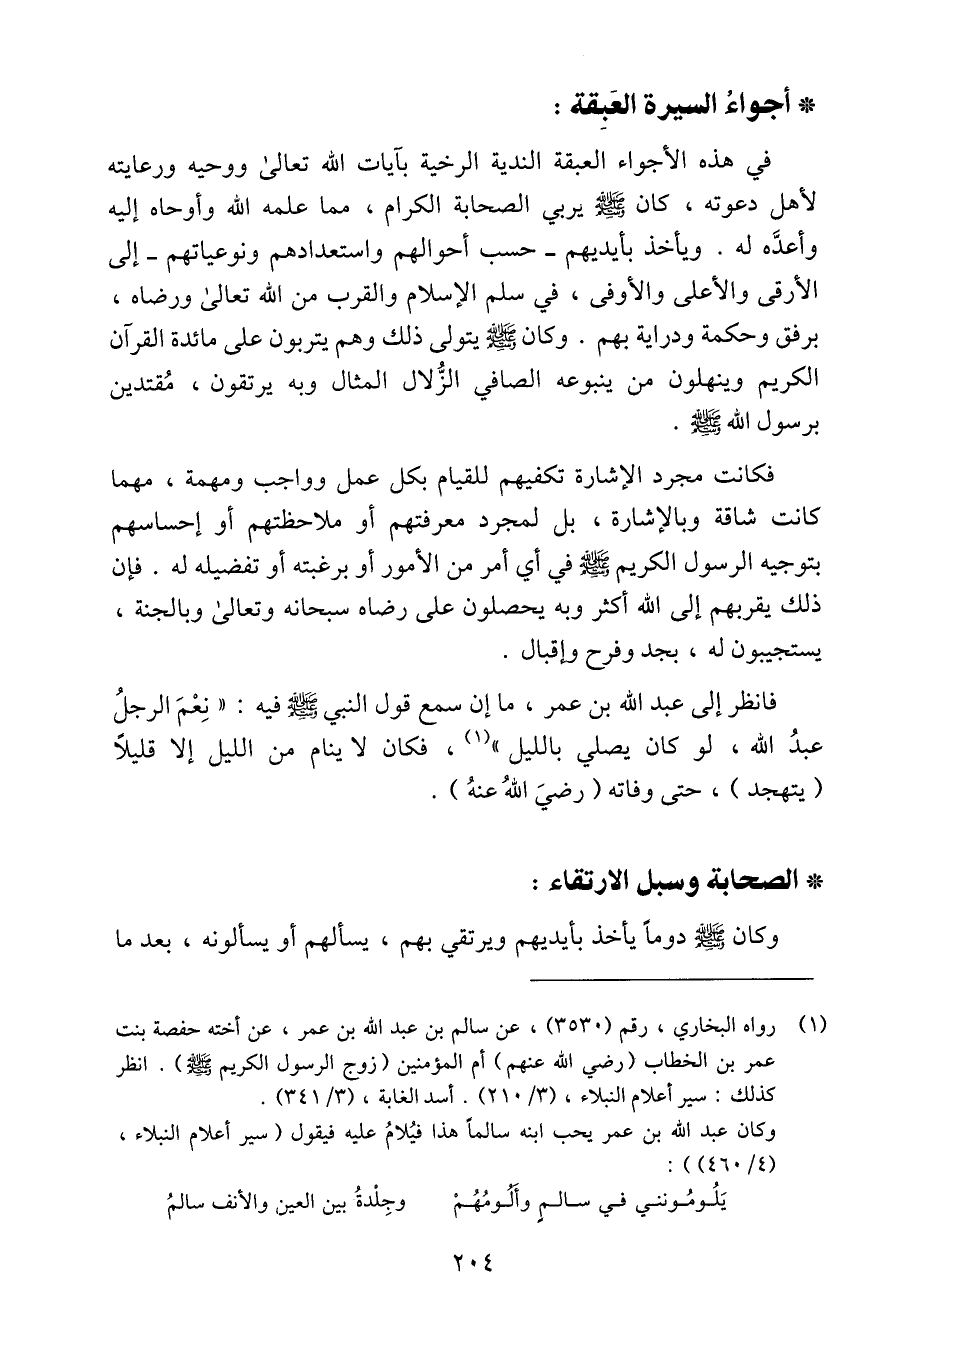 * أجواءُ السيرة العَبِقة :
في هذه الأجواء العبقة الندية الرخية بآيات الله تعالىٰ ووحيه ورعايته
لأهل دعوته ، كان ﷺ يربي الصحابة الكرام ، مما علمه الله وأوحاه إليه
وأعدَّه له . ويأخذ بأيديهم ـ حسب أحوالهم واستعدادهم ونوعياتهم ـ إلى
الأرقى والأعلى والأوفى ، في سلم الإسلام والقرب من الله تعالىٰ ورضاه ،
برفق وحكمة ودراية بهم . وكان ﷺ يتولى ذلك وهم يتربون على مائدة القرآن
الكريم وينهلون من ينبوعه الصافي الزُّلال المثال وبه يرتقون ، مُقتدين
برسول الله ﷺ .
فكانت مجرد الإشارة تكفيهم للقيام بكل عمل وواجب ومهمة ، مهما
كانت شاقة وبالإشارة ، بل لمجرد معرفتهم أو ملاحظتهم أو إحساسهم
بتوجيه الرسول الكريم ﷺ في أي أمر من الأمور أو برغبته أو تفضيله له . فإن
ذلك يقربهم إلى الله أكثر وبه يحصلون على رضاه سبحانه وتعالىٰ وبالجنة ،
يستجيبون له ، بجد وفرح وإقبال .
فانظر إلى عبد الله بن عمر ، ما إن سمع قول النبي ﷺ فيه : « نِعْمَ الرجلُ
عبدُ الله ، لو كان يصلي بالليل »(١) ، فكان لا ينام من الليل إلا قليلاً
( يتهجد ) ، حتى وفاته ( رضيَ اللهُ عنهُ ) .
* الصحابة وسبل الارتقاء :
وكان ﷺ دوماً يأخذ بأيديهم ويرتقي بهم ، يسألهم أو يسألونه ، بعد ما
(١) رواه البخاري ، رقم (٣٥٣٠) ، عن سالم بن عبد الله بن عمر ، عن أخته حفصة بنت
عمر بن الخطاب (رضي الله عنهم) أم المؤمنين (زوج الرسول الكريم ﷺ) . انظر
كذلك : سير أعلام النبلاء ، (٢١٠/٣) . أسد الغابة ، (٣٤١/٣) .
وكان عبد الله بن عمر يحب ابنه سالماً هذا فيُلامُ عليه فيقول ( سير أعلام النبلاء ،
(٤٦٠/٤) ) :
يَلُـومُـونني فـي سـالـمٍ وأَلُـومُهُـمْ وجِلْدةُ بين العين والأنف سالمُ
٢٠٤